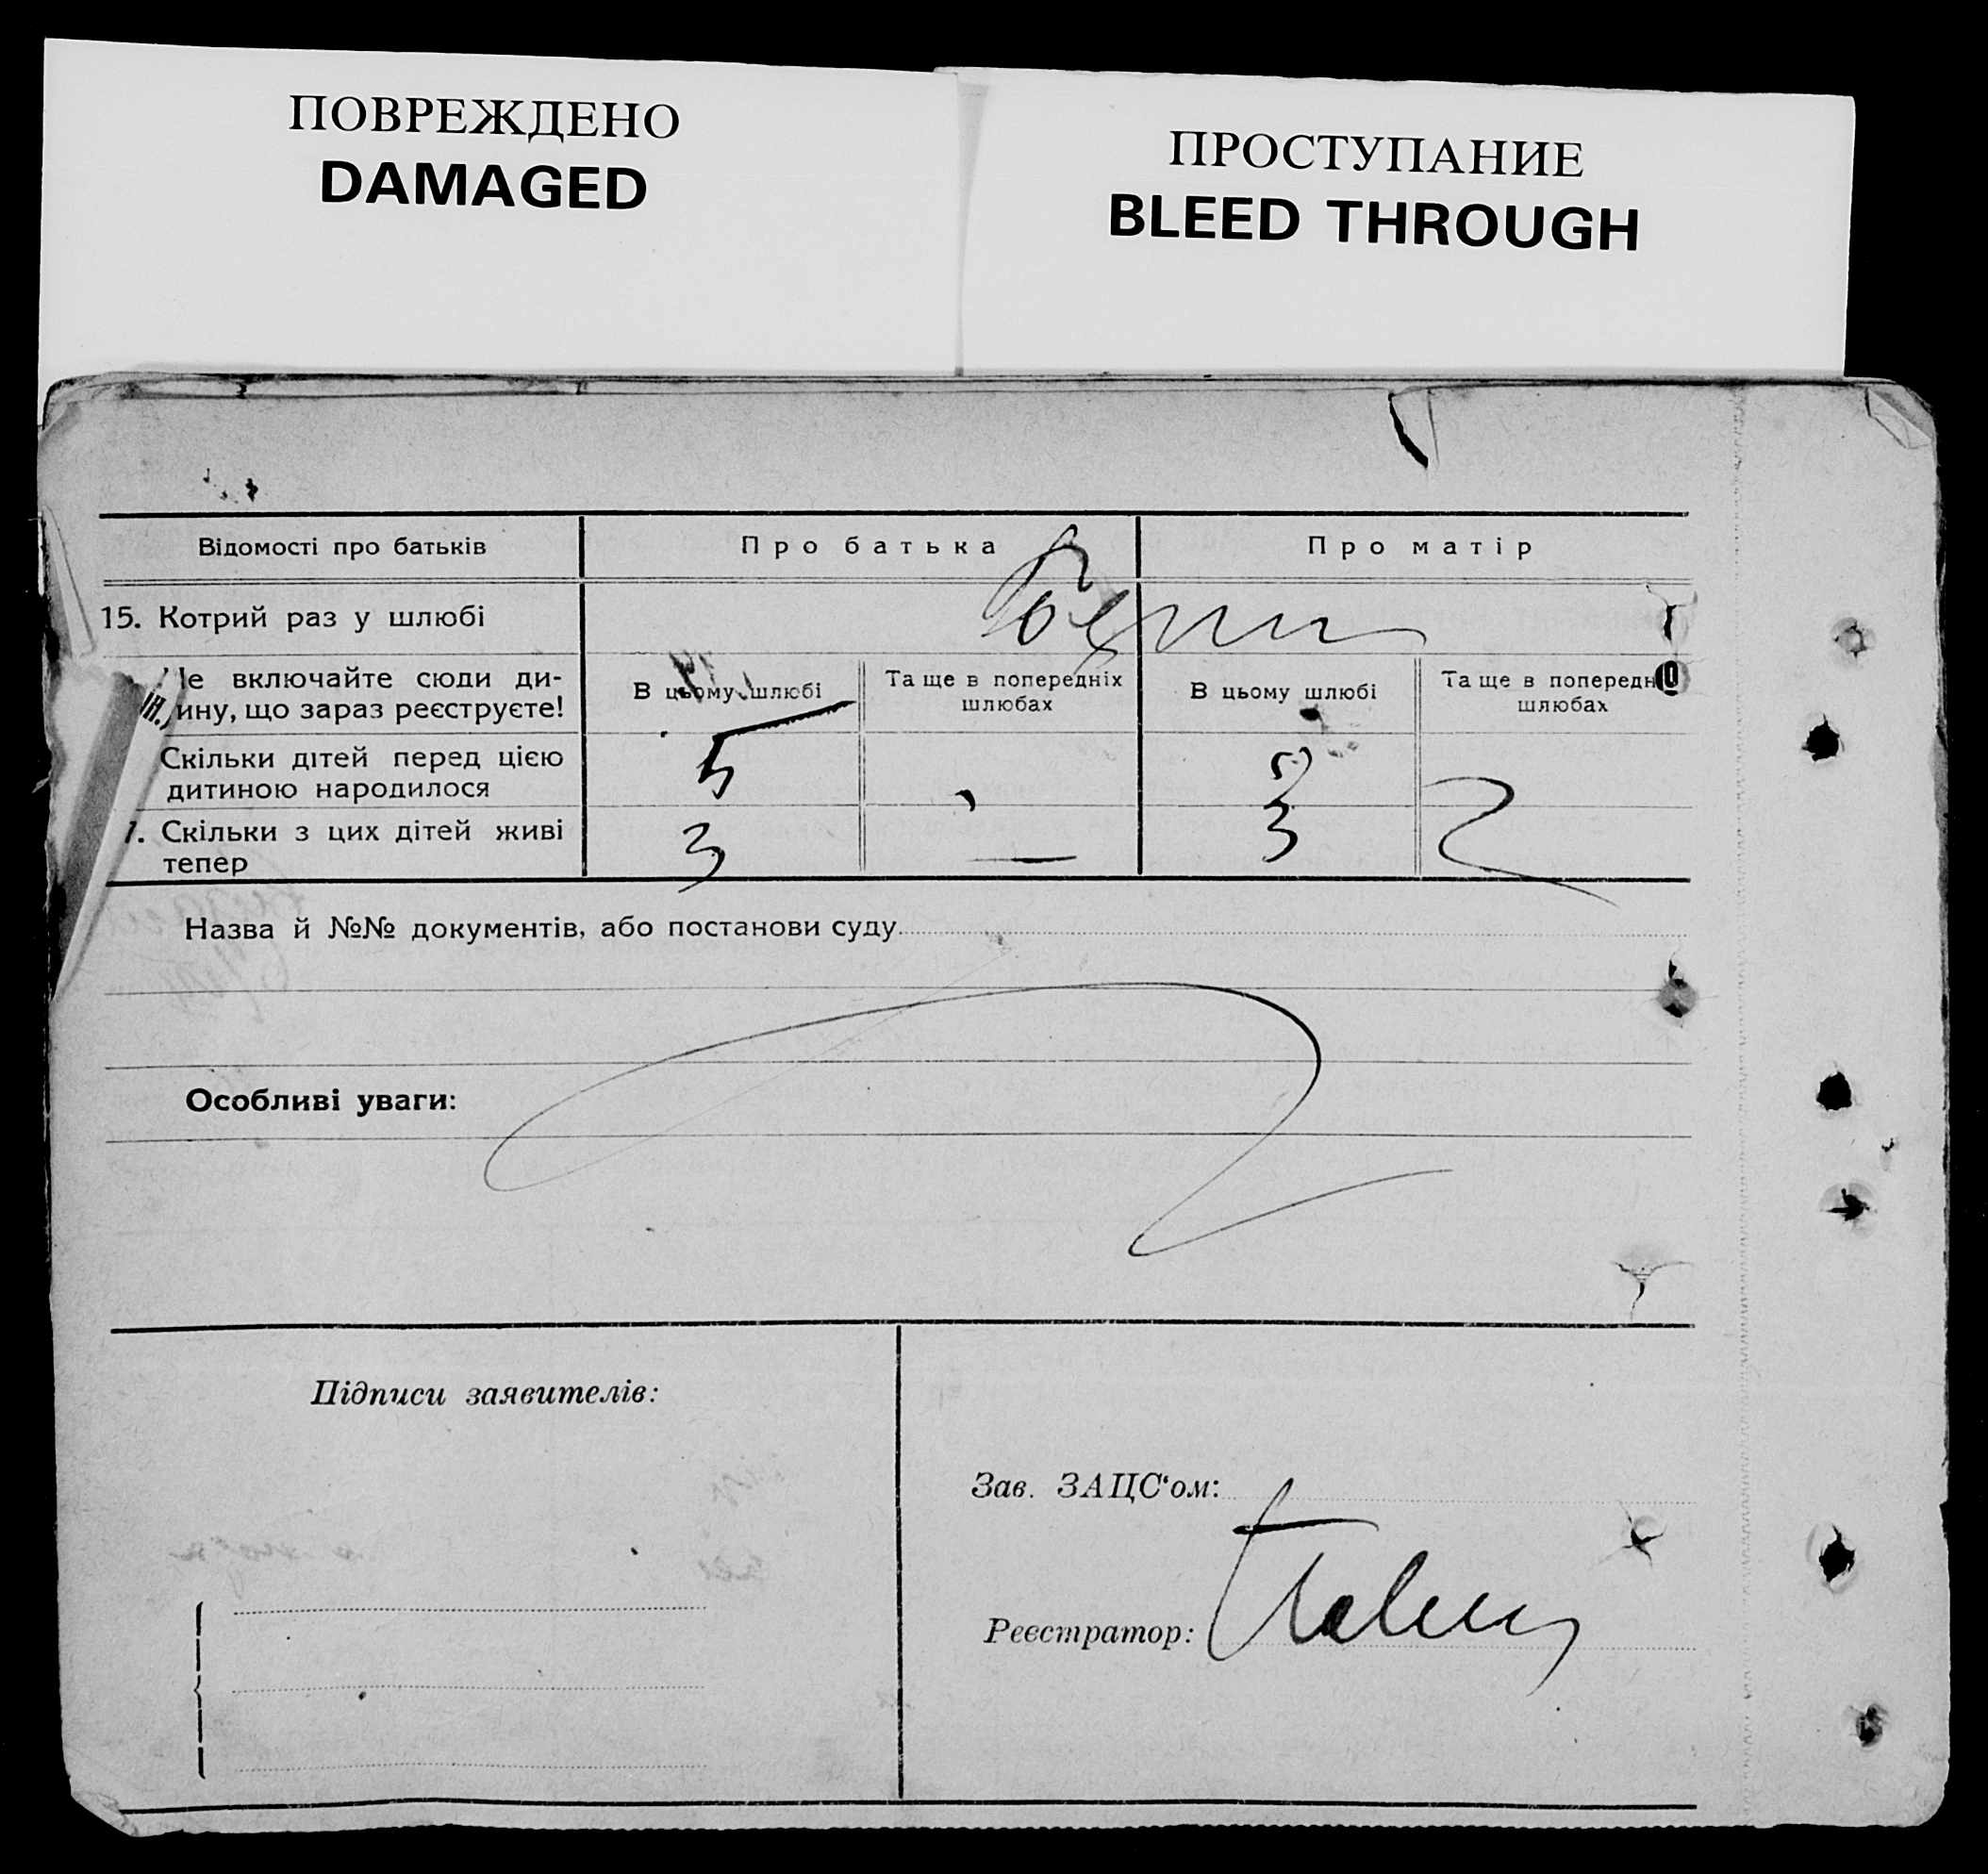 ПОВРЕЖДЕНО
DAMAGED
ПРОСТУПАНИЕ
BLEED THROUGH
Відомості про батьків
Про батька
Про матір
15. Котрий раз у шлюбі
Не включайте сюди ди-
ину, що зараз реєструєте!
В цьому шлюбі
Та ще в попередніх
шлюбах
В цьому шлюбі
Та ще в попередн
шлюбах
Скільки дітей перед цією
дитиною народилося
5
5
7. Скільки з цих дітей живі
тепер
3
—
3
Назва й №№ документів, або постанови суду
Особливі уваги:
Підписи заявителів:
Зав. ЗАЦС‘ом:
Реєстратор: